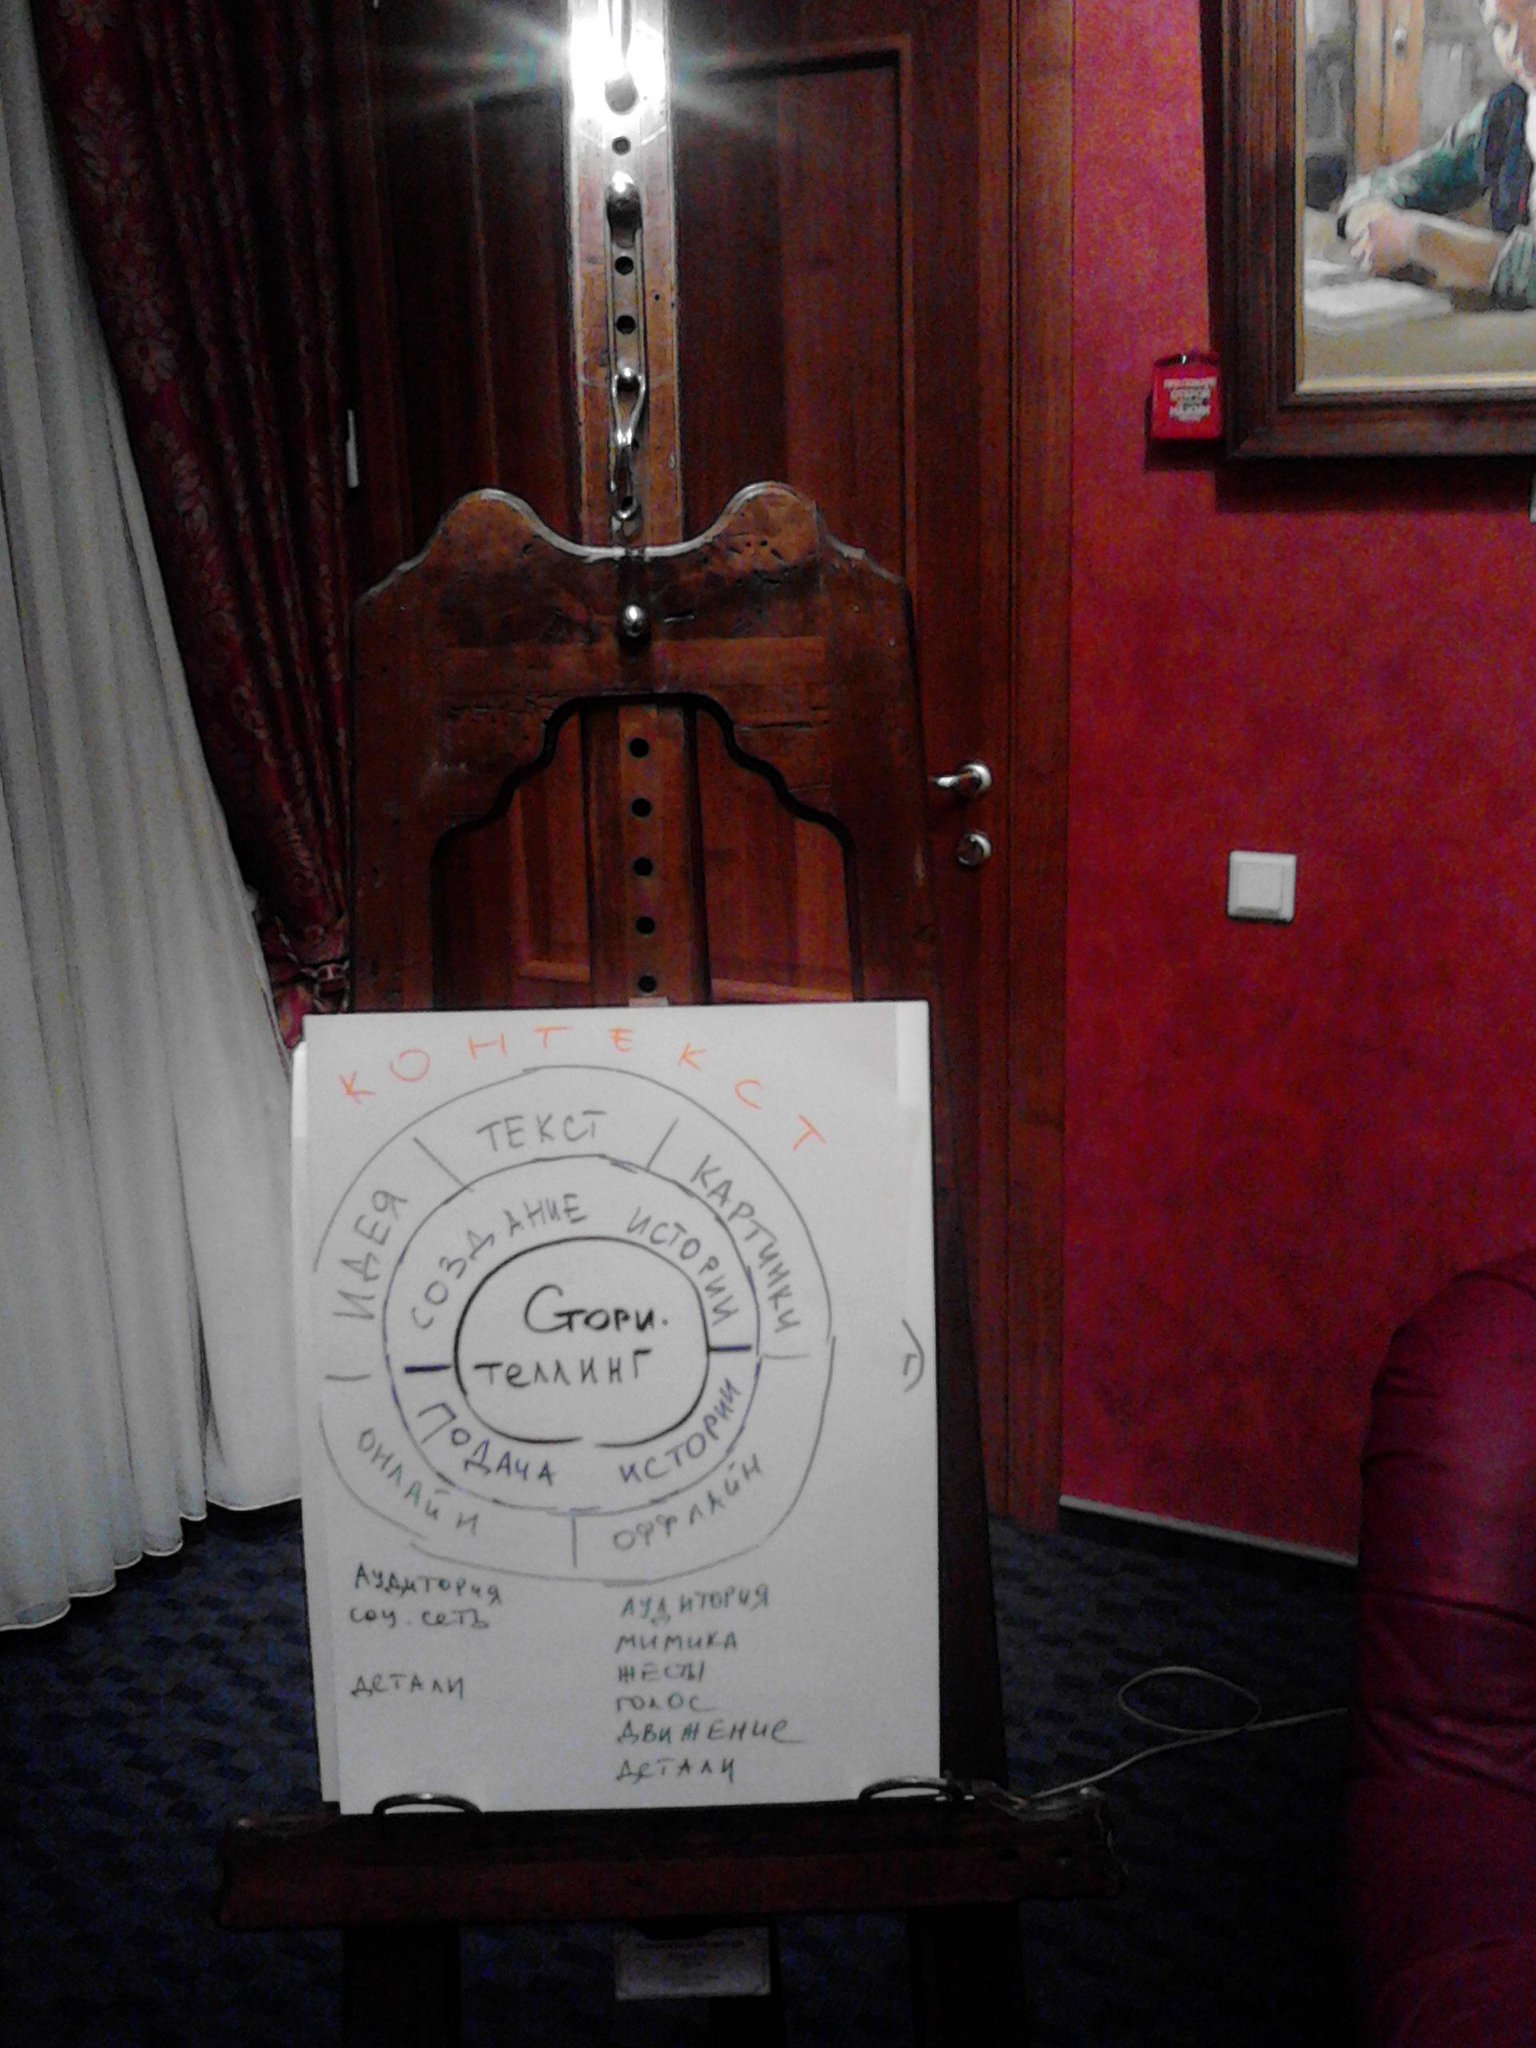 КОНТЕКСТ
ИДЕЯ
ТЕКСТ
КАРТИНКИ
СОЗДАНИЕ ИСТОРИИ
Стори.
теллинг
ПОДАЧА ИСТОРИИ
ОНЛАЙН
ОФФЛАЙН
АУДИТОРИЯ
соц. сеть
ДЕТАЛИ
АУДИТОРИЯ
МИМИКА
ЖЕСТЫ
ГОЛОС
ДВИЖЕНИЕ
ДЕТАЛИ